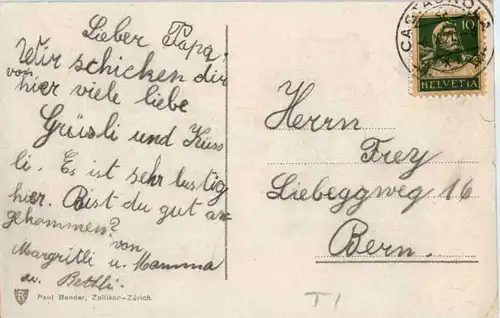 Lieber Papa,
Wir schicken dir
von hier viele liebe
Grüsli und Küss
li. Es ist sehr lustig
hier. Bist du gut an=
gekommen?
von
Margritli u. Mamma
u. Bethli.
Paul Bender, Zollikon-Zürich.
10
HELVETIA
Herrn
Frey
Liebeggweg 16
Bern.
T1